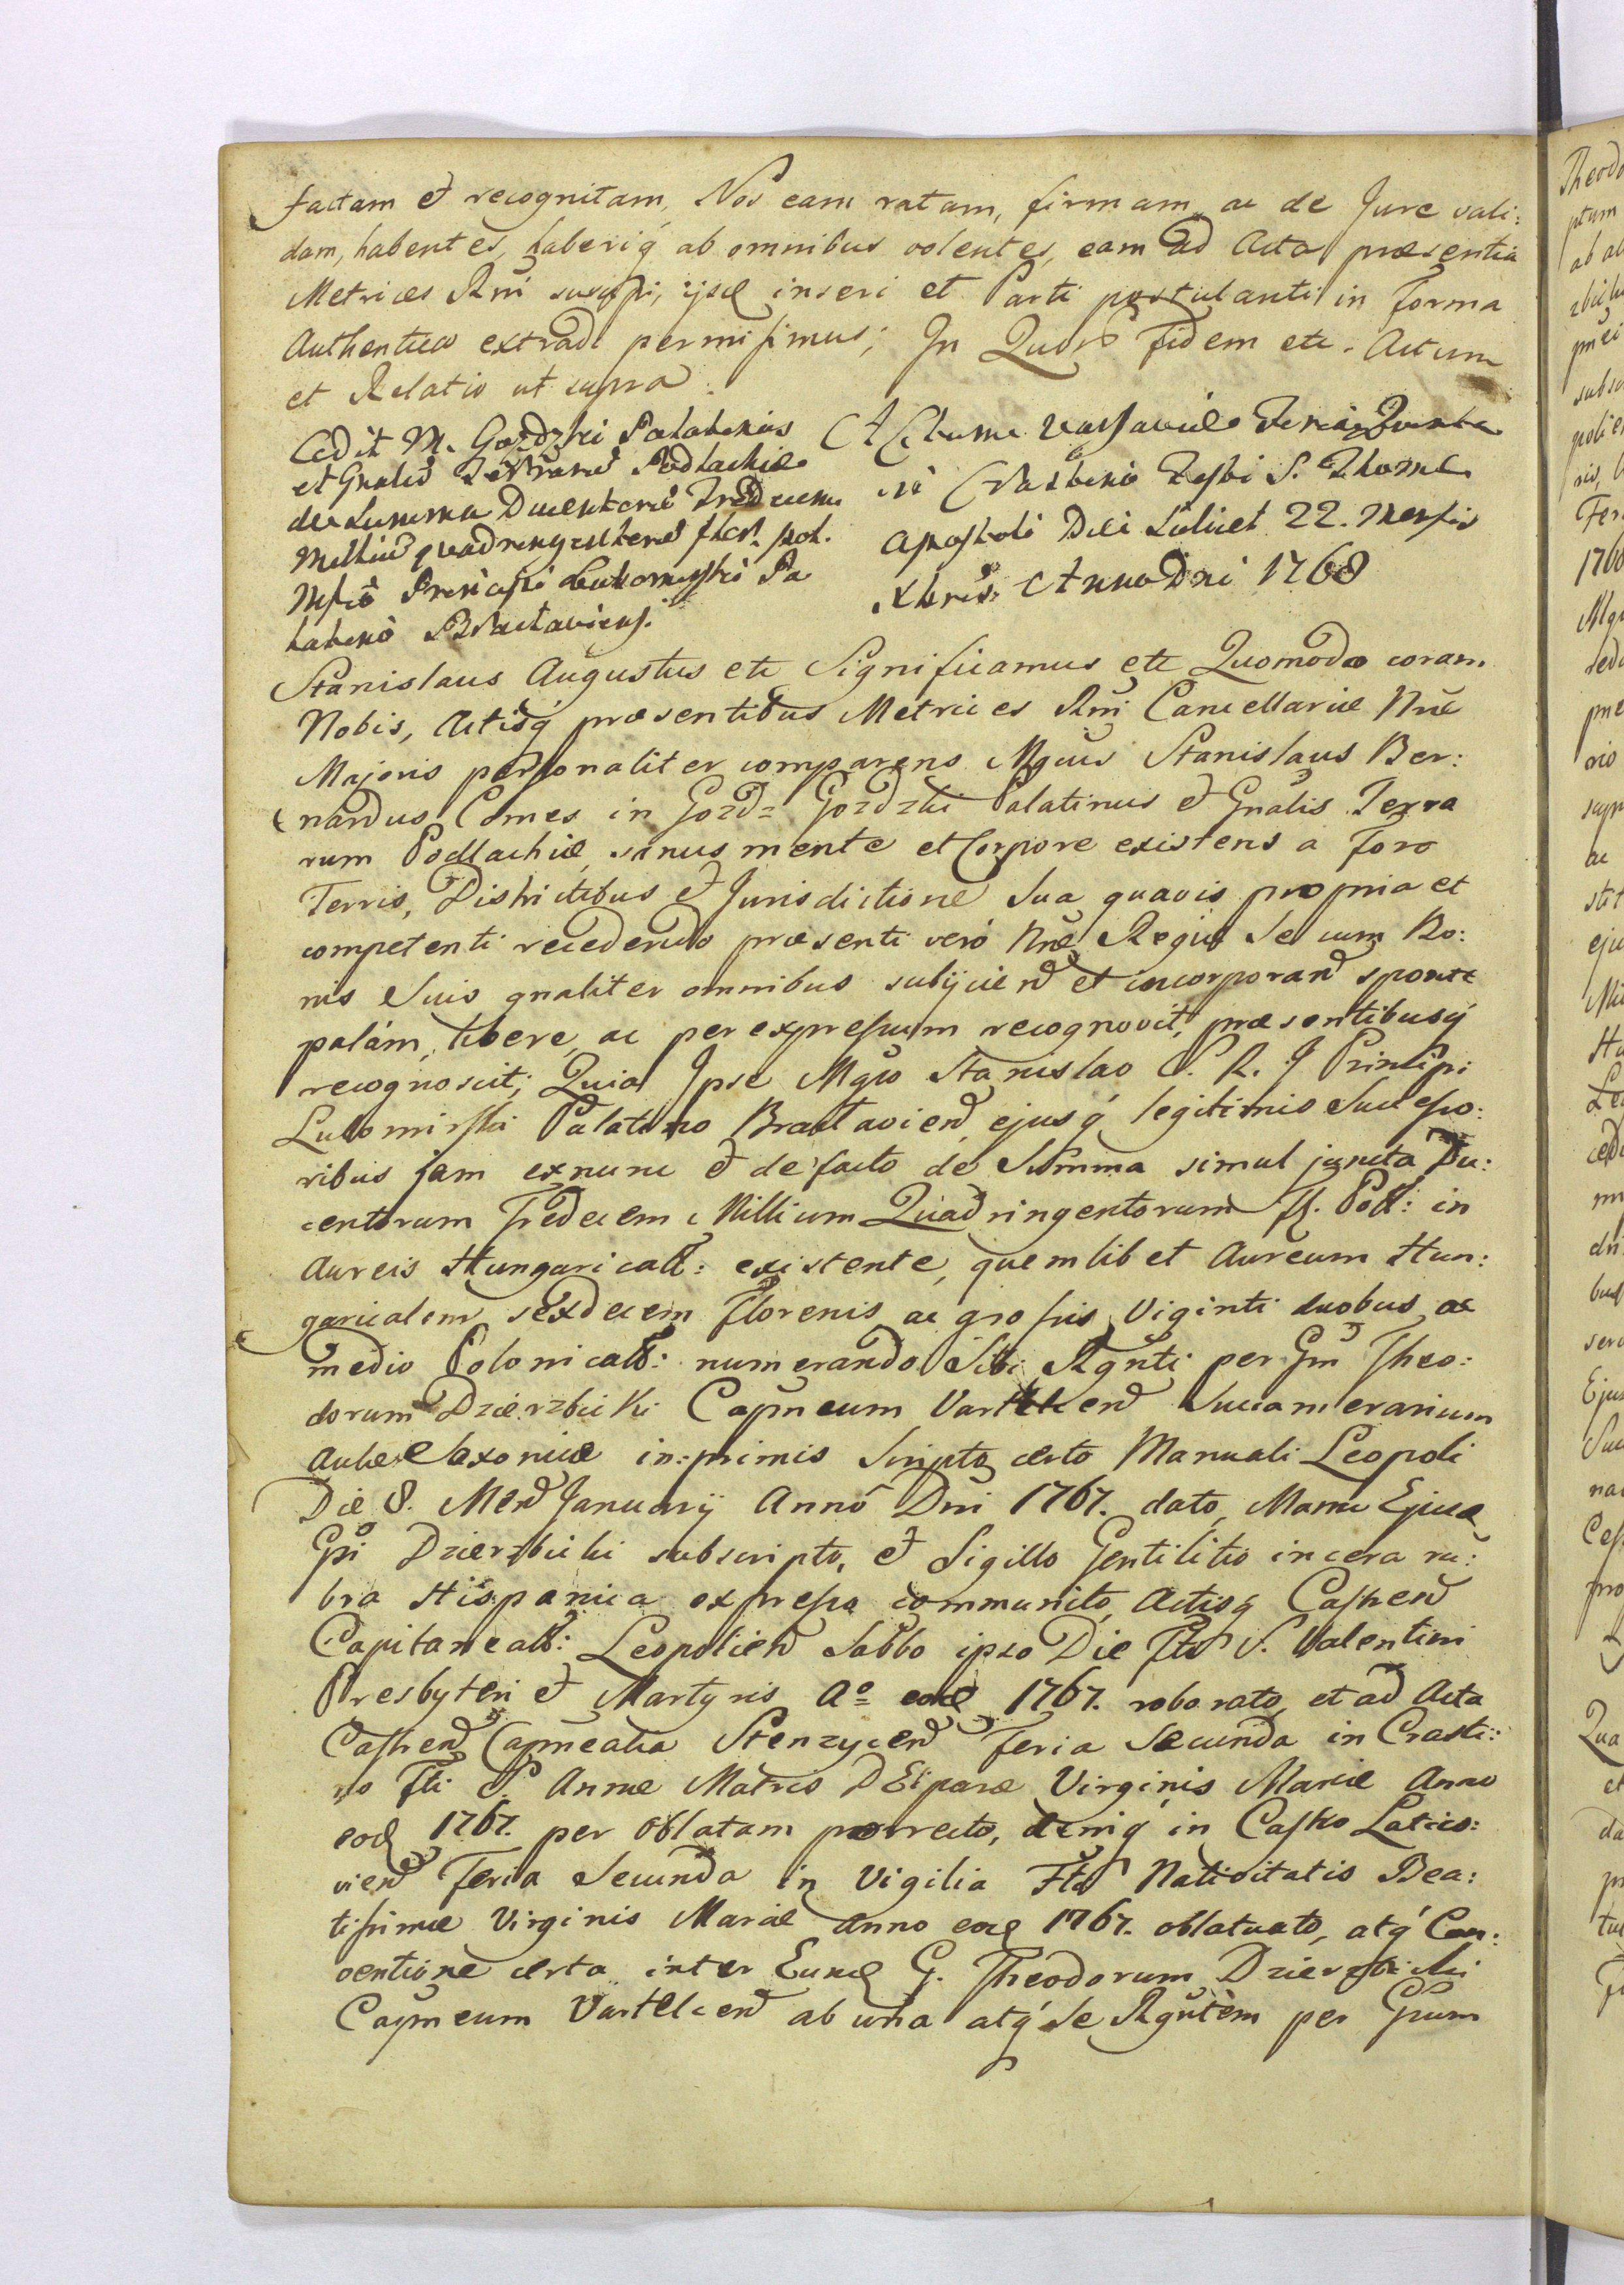 factam et recognitam, Nos eam ratam, firmam, ac de Jure vali:
dam, habentes, haberiq́ ab omnibus volentes, eam ad Acta præsentia
Metrices Rni suscipi, ijsd inseri et Parti postulanti in Forma
Authentica extradi permisimus; In Quor Fidem etc. Actum
et Relatio ut supra
Cedit M. Gozdzki Palatinus
et Gnalis Terrarū Podlachiæ
de Summa Ducentorū Tredecem
Millium quadringentorū flor. pol.
Mfco Principi Lubomirski Pa
latino Braclaviens.
Actum Varsaviæ Feria Quinta
in Crastino Festi S. Thomæ
Apostoli Diei Scilicet 22. Mensis
Xbris Anno Dni 1768
Stanislaus Augustus etc Significamus etc Quomodo coram
Nobis, Actisq́ præsentibus Metrices Rni Cancellariæ Nræ
Majoris personaliter comparens Mgcus Stanislaus Ber:
nardus Comes in Gozdz Gozdzki Palatinus et Gnalis Terra
rum Podlachiæ, sanus mente et Corpore existens a Foro
Terris, Districtibus et Jurisdictione Sua quavis propria et
competenti recedendo præsenti verò Nræ Regiæ Se cum Bo:
nis Suis gnaliter omnibus subijciend et incorporand sponte
palàm, libere, ac per expressum recognovit, præsentibusq́
recognoscit; Quia Ipse Mgco Stanislao S. R. J Principi
Lubomirski Palatino Bractavien, ejusq́ legitimis Successo:
ribus jam exnunc et de facto de Summa simul juncta Du:
centorum Tredecem Millium Quadringentorum Fl. Poll: in
Aureis Hungaricall: existente, quemlibet Aureum Hun:
garicalem sexdecem Florenis, ac grossis Viginti duobus, ac
medio Polonicall: numerando Sibi Rgnti per Gm Theo:
dorum Dzierzbicki Capneum Vartelcen Succamerarium
Aulæ Saxonicæ in:primis Scripto certo Manuali Leopoli
Die 8. Men Januarij Annô Dni 1767. dato, Manu Ejusd
Gsi Dzierzbicki subscripto, et Sigillo Gentilitio in cera ru:
bra Hispanica expresso communito, Actisq́ Castren
Capitaneall: Leopolien Sabbo ipso Die Fti S. Valentini
Presbyteri et Martyris Ao eod 1767. roborato, et ad Acta
Castren Capnealia Stenzycen Feria Secunda in Crasti:
no Fti S. Annæ Matris DEiparæ Virginis Mariæ Anno
eod 1767. per Oblatam porrecto, deniq́ in Castro Laticzo:
vien Feria Secunda in Vigilia Fti Nativitatis Bea:
tissimæ Virginis Mariæ Anno eod 1767. oblatuato, atq́ Con:
ventione certa inter Eund G. Theodorum Dzierzbicki
Capneum Vartelcen ab una atq́ Se Rgntem per Gsum